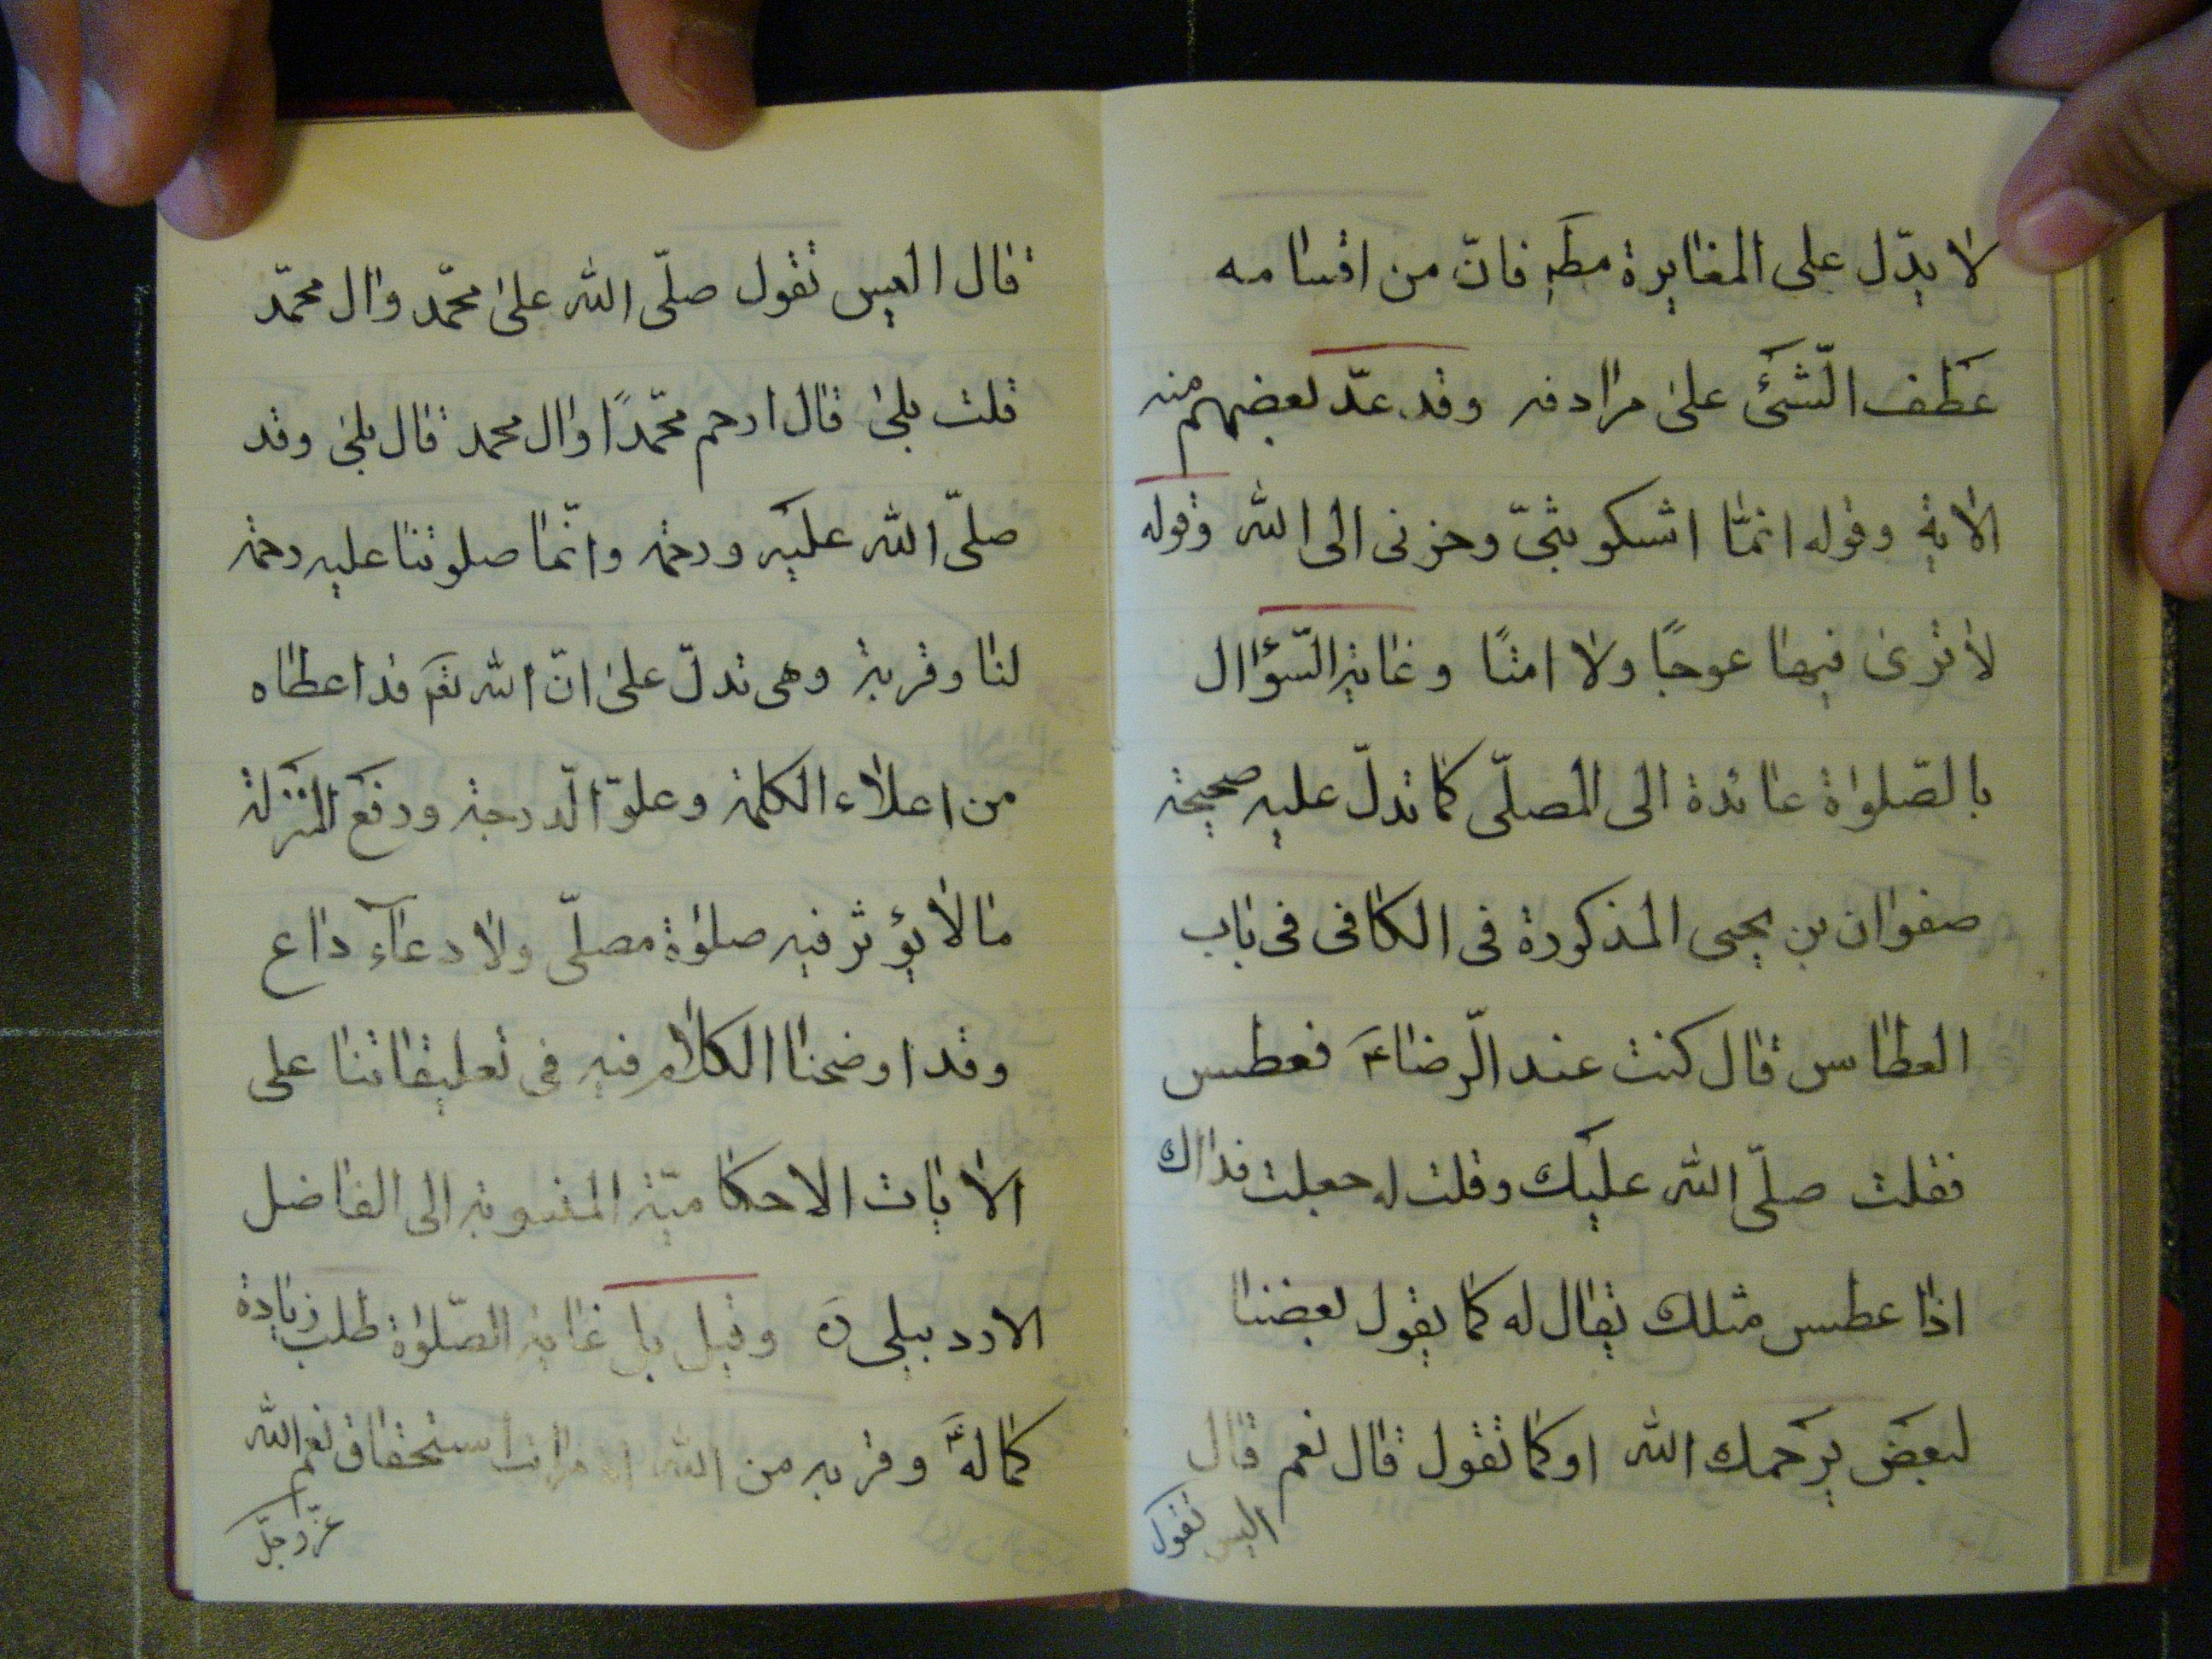 لا يدّل على المغايرة مطم فانّ من اقسامه
عَطف الّشئَ علىٰ مرادفه وقد عدّ بعضهم منه
الاٰية وقوله انمّا اشكو بثىّ وحزنى الى الله وقوله
لا ترىٰ فيها عوجًا ولا امتًا وغاية السّؤال
بالصّلوٰة عائدة الى المصلّى كما تدلّ عليه صحيحة
صفوان بن يحيى المذكورة فى الكافى فى باب
العطاس قال كنت عند الّرضاءَ فعطس
فقلت صلّى الله عليك وقلت له جعلت فداك
اذا عطس مثلك يقال له كما يقول بعضنا
لبعض يرحمك الله اوكما نقول قال نعم قال
اليس تقول
قال اليس تقول صلّى الله علىٰ محمّد واٰل محمّد
قلت بلىٰ قال ارحم محمّدًا واٰل محمد قال بلىٰ وقد
صلّى الله عليه ورحمه وانّما صلوتنا عليه رحمة
لنا وقربة وهى تدلّ علىٰ انّ الله تعَ قد اعطاه
من اعلاء الكلمة وعلوّ الّدرجة ورفع المنزلة
ما لا يؤثر فيه صلوٰة مصلّى ولا دعآء داع
وقد اوضحنا الكلام فيه فى تعليقاتنا على
الاٰيات الاحكاميّة المنسوبة الى الفاضل
الاردبيلى رَه وقيل بل غاية الصّلوٰة طلب زيادة
كماله وقربه من الله استحقاق نعم الله
عزّوجلّ